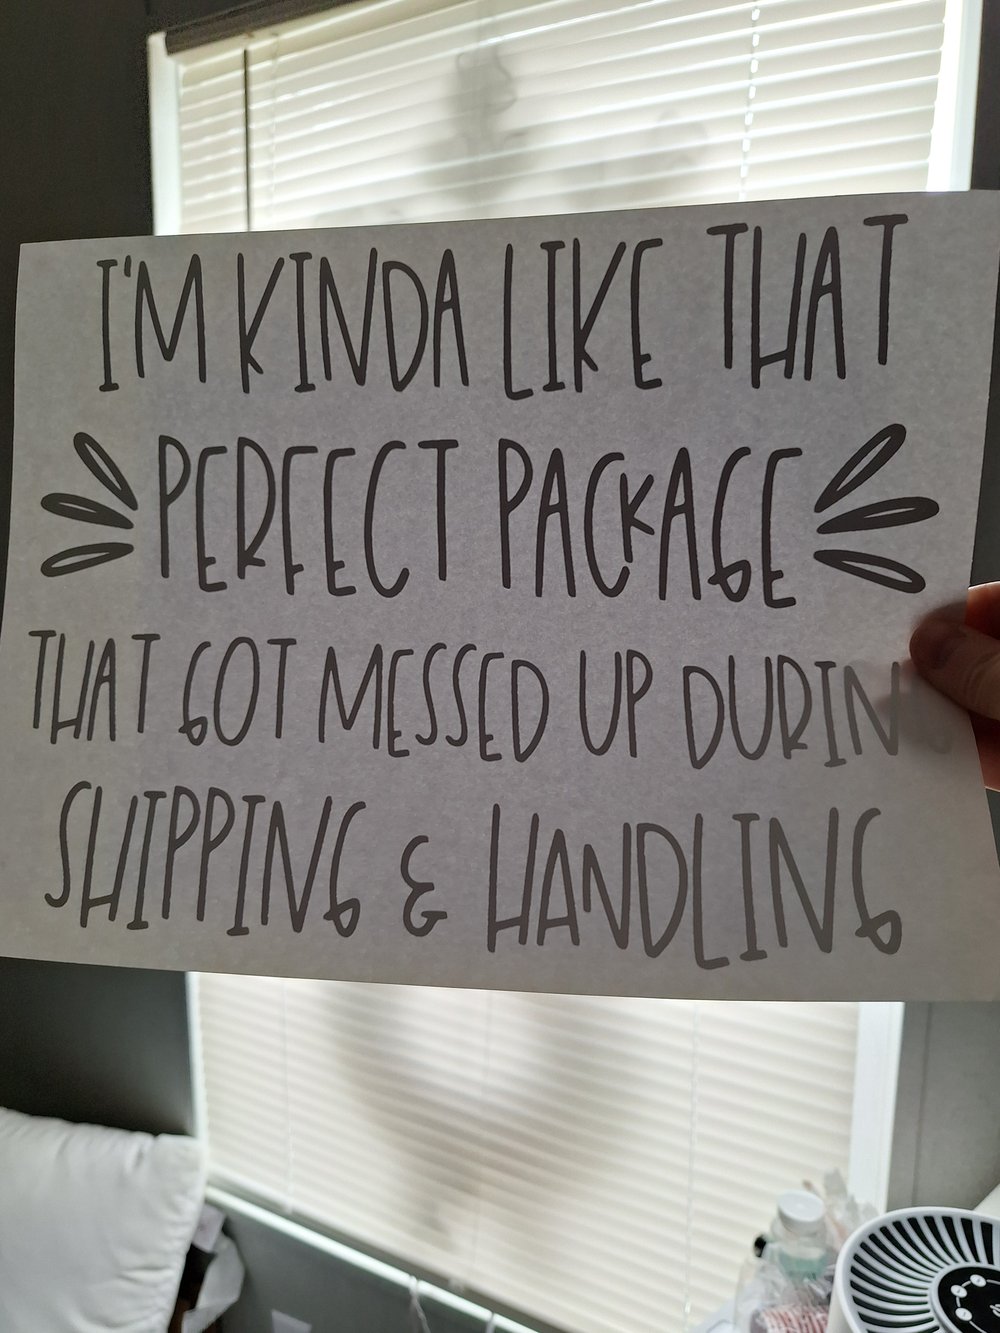 I'M KINDA LIKE THAT
PERFECT PACKAGE
THAT GOT MESSED UP DURIN
SHIPPING & HANDLING